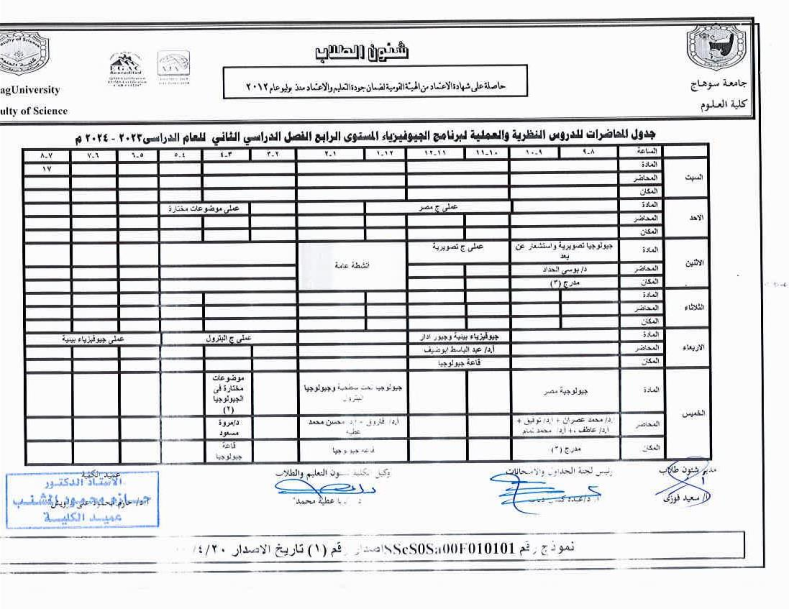 شئون الطلاب
حاصلة على شهادة الاعتماد من الهيئة القومية لضمان جودة التعليم والاعتماد منذ يوليو عام ٢٠١٢
جامعة سوهاج
كلية العلوم
agUniversity
ulty of Science
EGAC
Accredited
جدول المحاضرات للدروس النظرية والعملية لبرنامج الجيوفيزياء المستوى الرابع الفصل الدراسي الثاني للعام الدراسى ٢٠٢٣ - ٢٠٢٤ م
الساعة ٨-٩ ٩-١٠ ١٠-١١ ١١-١٢ ١٢-١ ١-٢ ٢-٣ ٣-٤ ٤-٥ ٥-٦ ٦-٧ ٧-٨
السبت
المادة ١٧
المحاضر
المكان
الاحد
المادة عملي ج مصر عملي موضوعات مختارة
المحاضر
المكان
الاثنين
المادة جيولوجيا تصويرية واستشعار عن بعد عملي ج تصويرية
أنشطة عامة
المحاضر د/ بوسى الحداد
المكان مدرج (٣)
الثلاثاء
المادة
المحاضر
المكان
الاربعاء
المادة جيوفيزياء بيئية وجيور ادار عملي ج البترول عملي جيوفيزياء بيئية
المحاضر أ.د/ عبد الباسط ابوضيف
المكان قاعة جيولوجيا
الخميس
المادة جيولوجية مصر جيولوجيا تحت سطحية وجيولوجيا البترول موضوعات مختارة فى الجيولوجيا (٢)
المحاضر أ.د/ محمد عصران + أ.د/ توفيق + أ.د/ عاطف + أ.د/ محمد تمام أ.د/ فاروق + أ.د محسن محمد عطية د/مروة مسعود
المكان مدرج (٣) قاعة جيولوجيا قاعة جيولوجيا
مدير شئون طلاب
رئيس لجنة الجداول والامتحانات
وكيل الكلية لشئون التعليم والطلاب
عميد الكلية
أ/ سعيد فوزى
عطية محمد
الأستاذ الدكتور
عميد الكلية
نموذج رقم SScS0Sa00F010101 اصدار رقم (١) تاريخ الاصدار ٤/٢٠/